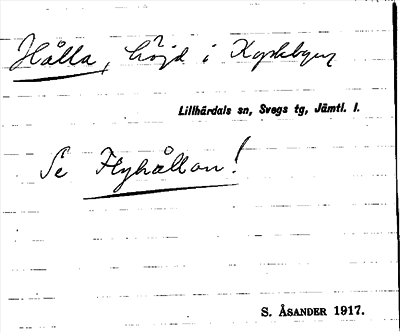 Hålla, höjd i Kyrkbyn
Lillhärdals sn, Svegs tg, Jämtl. l.
Se Flyhållan!
S. ÅSANDER 1917.